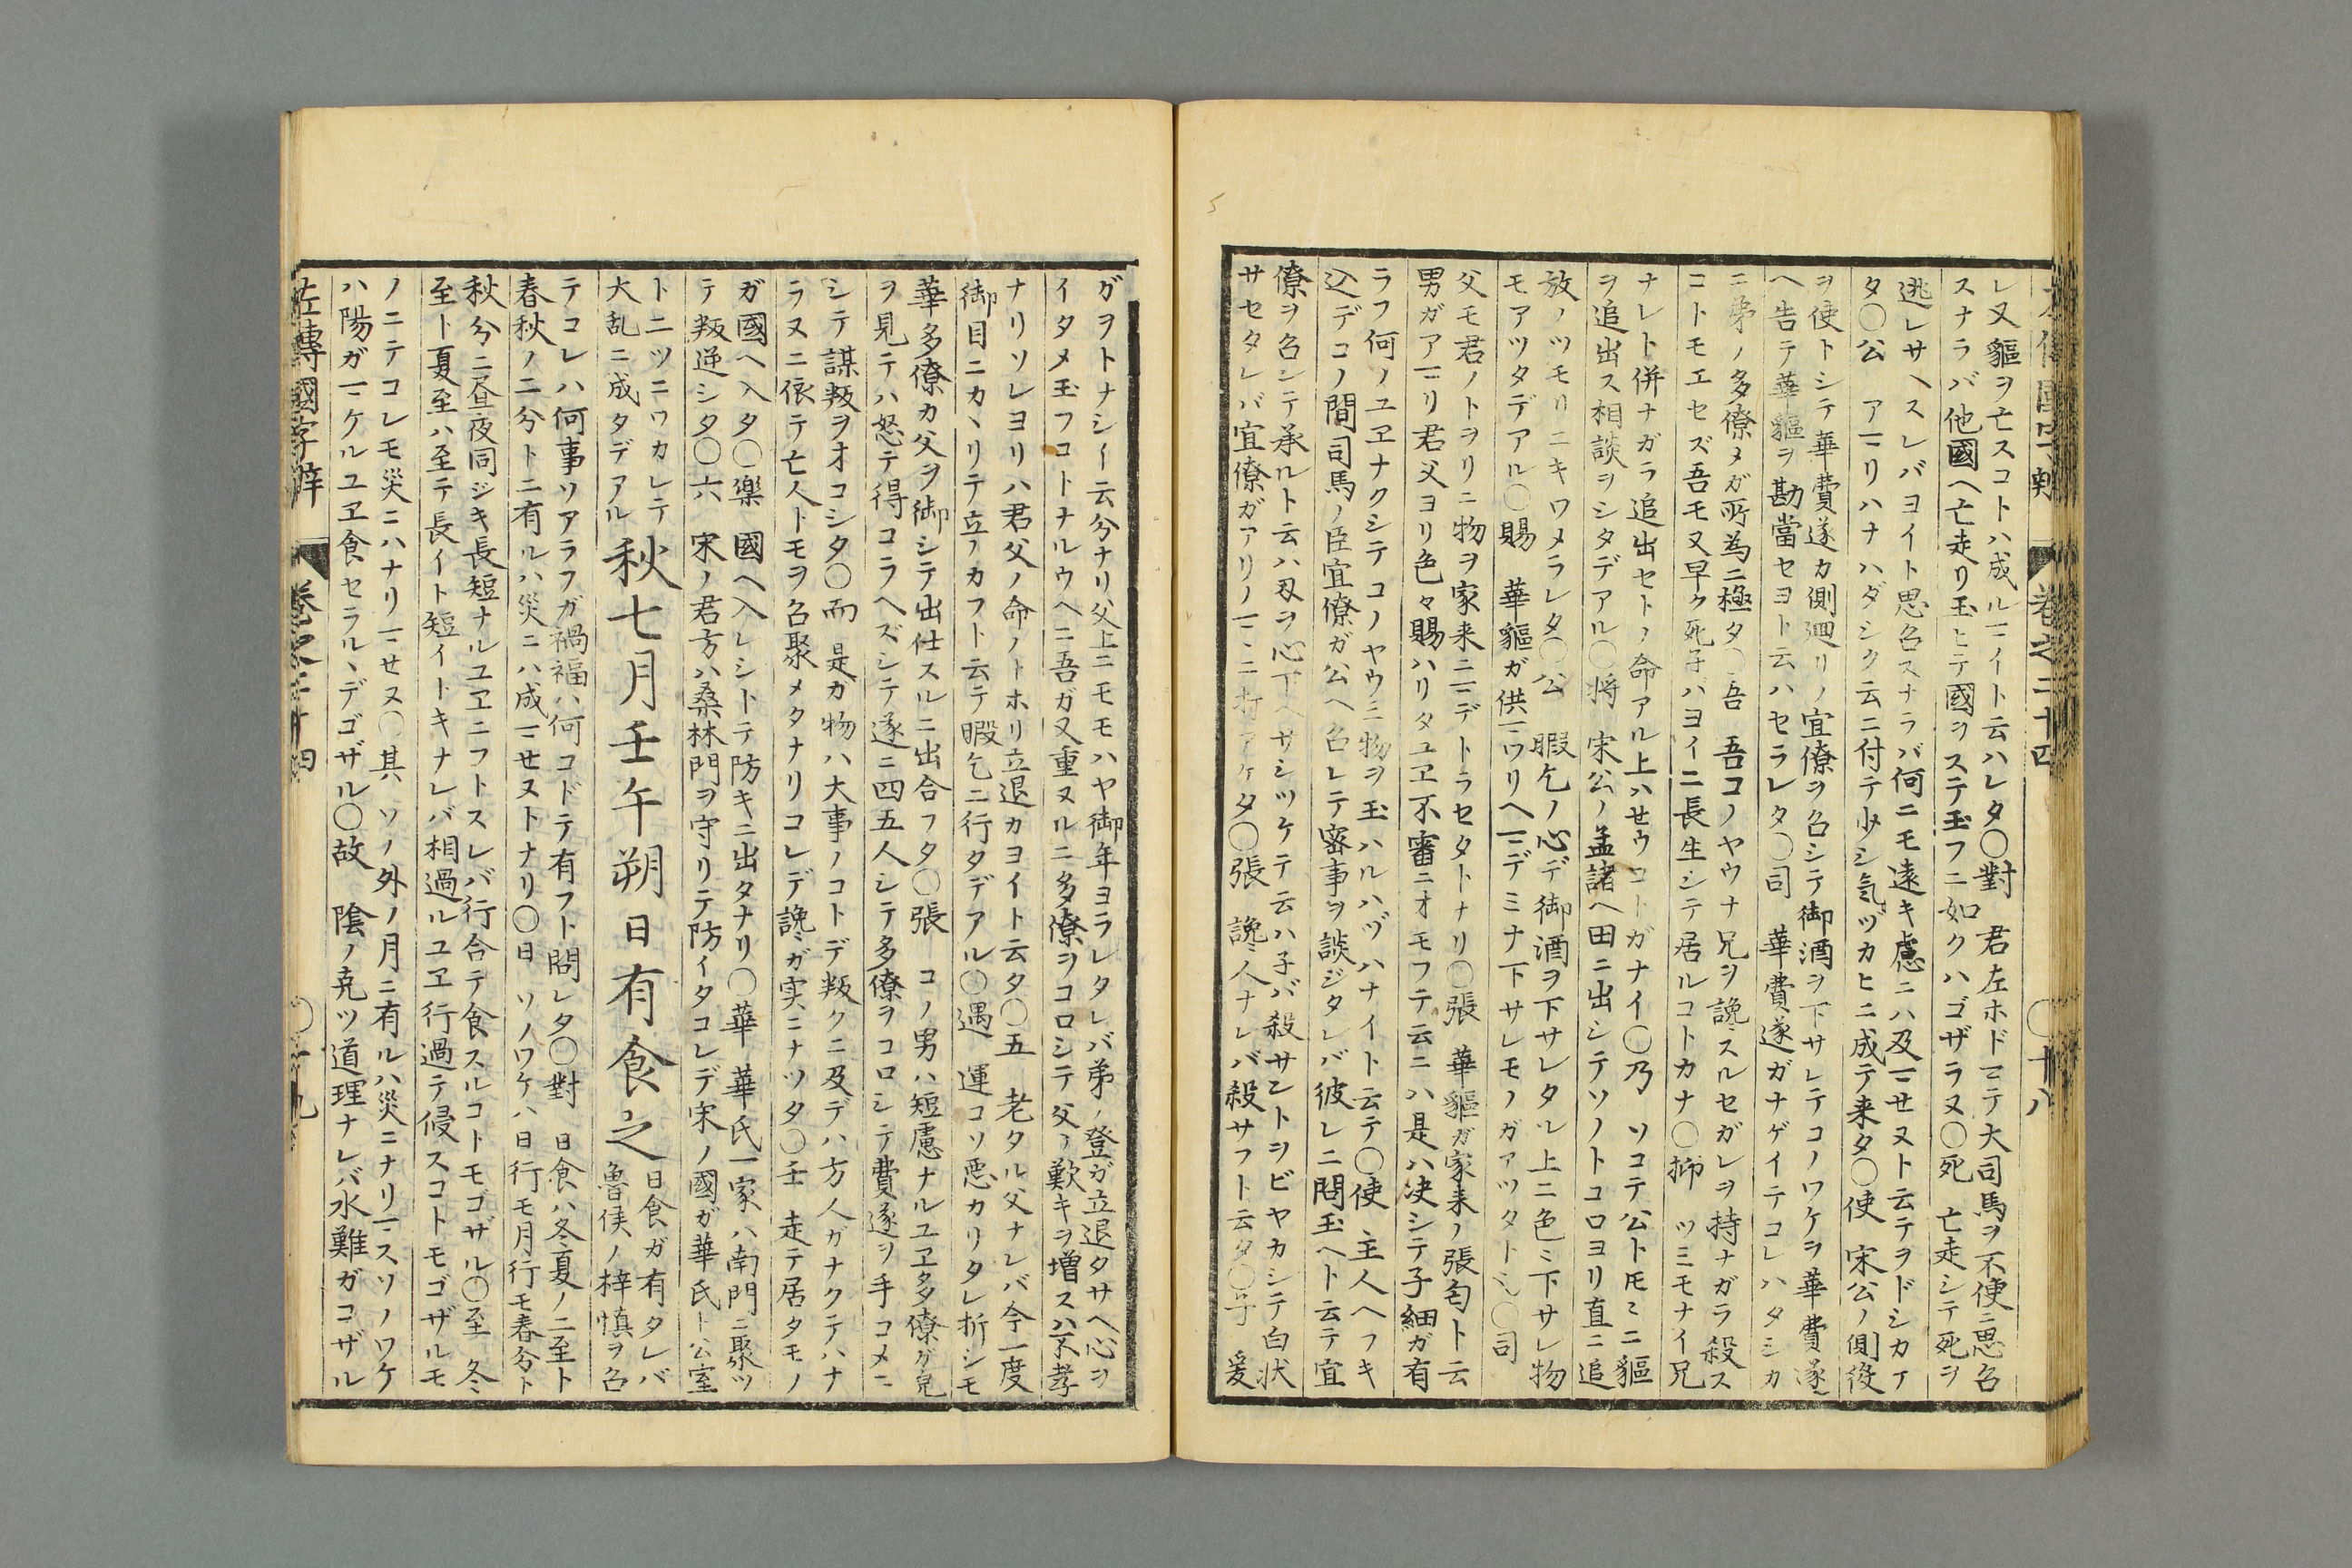 左傳國字辨 巻之二十四 〇十八
レ又貙ヲ亡スコトハ成ルマイト云ハレタ〇對 君左ホドマテ大司馬ヲ不便ニ思召
スナラバ他國ヘ亡走リ玉ヒテ國ヲステ玉フニ如クハゴザラヌ〇死 亡走シテ死ヲ
逃レサヘスレバヨイト思召スナラバ何ニモ遠キ慮ニハ及マセヌト云テヲドシカケ
タ〇公 アマリハナハダシク云ニ付テ少シ氣ヅカヒニ成テ来タ〇使 宋公ノ側役
ヲ使トシテ華費遂カ側廻リノ宜僚ヲ召シテ御酒ヲ下サレテコノワケヲ華費遂
ヘ告テ華貙ヲ勘當セヨト云ハセラレタ〇司 華費遂ガナゲイテコレハタシカ
ニ弟ノ多僚メガ所為ニ極タ〇吾 吾コノヤウナ兄ヲ讒スルセガレヲ持ナガラ殺ス
コトモエセズ吾モ又早ク死子バヨイニ長生シテ居ルコトカナ〇抑 ツミモナイ兄
ナレト併ナガラ追出セトノ命アル上ハせウコトガナイ〇乃 ソコテ公トモニ貙
ヲ追出ス相談ヲシタデアル〇将 宋公ノ孟諸ヘ田ニ出シテソノトコロヨリ直ニ追
放ノツモリニキワメラレタ〇公 暇乞ノ心デ御酒ヲ下サレタル上ニ色ミ下サレ物
モアツタデアル〇賜 華貙ガ供マワリヘマデミナ下サレモノガアツタト也〇司
父モ君ノトヲリニ物ヲ家来ニマデトラセタトナリ〇張 華貙ガ家来ノ張匄ト云
男ガアマリ君父ヨリ色々賜ハリタユヱ不審ニオモフテ云ニハ是ハ決シテ子細ガ有
ラフ何ノユヱナクシテコノヤウニ物ヲ玉ハルハヅハナイト云テ〇使 主人ヘフキ
込デコノ間司馬ノ臣宜僚ガ公ヘ召レテ密事ヲ談ジタレバ彼レニ問玉ヘト云テ宜
僚ヲ召シテ承ルト云ハ刄ヲ心下ヘサシツケテ云ハ子バ殺サントヲビヤカシテ白状
サセタレバ宜僚ガアリノマヽニ打アケタ〇張 讒人ナレバ殺サフト云タ〇子 爰
ガヲトナシイ云分ナリ父上ニモモハヤ御年ヨラレタレバ弟ノ登ガ立退タサヘ心ヲ
イタメ玉フコトナルウヘニ吾ガ又重ヌルニ多僚ヲコロシテ父ノ歎キヲ増スハ不孝
ナリソレヨリハ君父ノ命ノトホリ立退カヨイト云タ〇五 老タル父ナレバ今一度
御目ニカヽリテ立ノカフト云テ暇乞ニ行タデアル〇遇 運コソ悪カリタレ折シモ
華多僚カ父ヲ御シテ出仕スルニ出合フタ〇張 コノ男ハ短慮ナルユヱ多僚ガ皃
ヲ見テハ怒テ得コラヘズシテ遂ニ四五人シテ多僚ヲコロシテ費遂ヲ手コメニ
シテ謀叛ヲオコシタ〇而 是カ物ハ大事ノコトデ叛クニ及デハ方人ガナクテハナ
ラヌニ依テ亡人トモヲ召聚メタナリコレデ讒ガ実ニナツタ〇壬 走テ居タモノ
ガ國ヘ入タ〇樂 國ヘ入レシトテ防キニ出タナリ〇華 華氏一家ハ南門ニ聚ツ
テ叛逆シタ〇六 宋ノ君方ハ桑林門ヲ守リテ防イタコレデ宋ノ國ガ華氏ト公室
ト二ツニワカレテ
大乱ニ成タデアル
秋七月壬午朔日有食之
日食ガ有タレバ
魯侯ノ梓慎ヲ召
テコレハ何事ソアラフガ禍福ハ何コドテ有フト問レタ〇對 日食ハ冬夏ノ二至ト
春秋ノ二分トニ有ルハ災ニハ成マせヌトナリ〇日 ソノワケハ日行モ月行モ春分ト
秋分ニ昼夜同ジキ長短ナルユヱニフトスレバ行合テ食スルコトモゴザル〇至 冬
至ト夏至ハ至テ長イト短イトキナレバ相過ルユヱ行過テ侵スコトモゴザルモ
ノニテコレモ災ニハナリマせヌ〇其 ソノ外ノ月ニ有ルハ災ニナリマスソノワケ
ハ陽ガマケルユヱ食セラルヽデゴザル〇故 陰ノ克ツ道理ナレバ水難ガゴザル
左傳國字辨 巻之二十四 〇十九